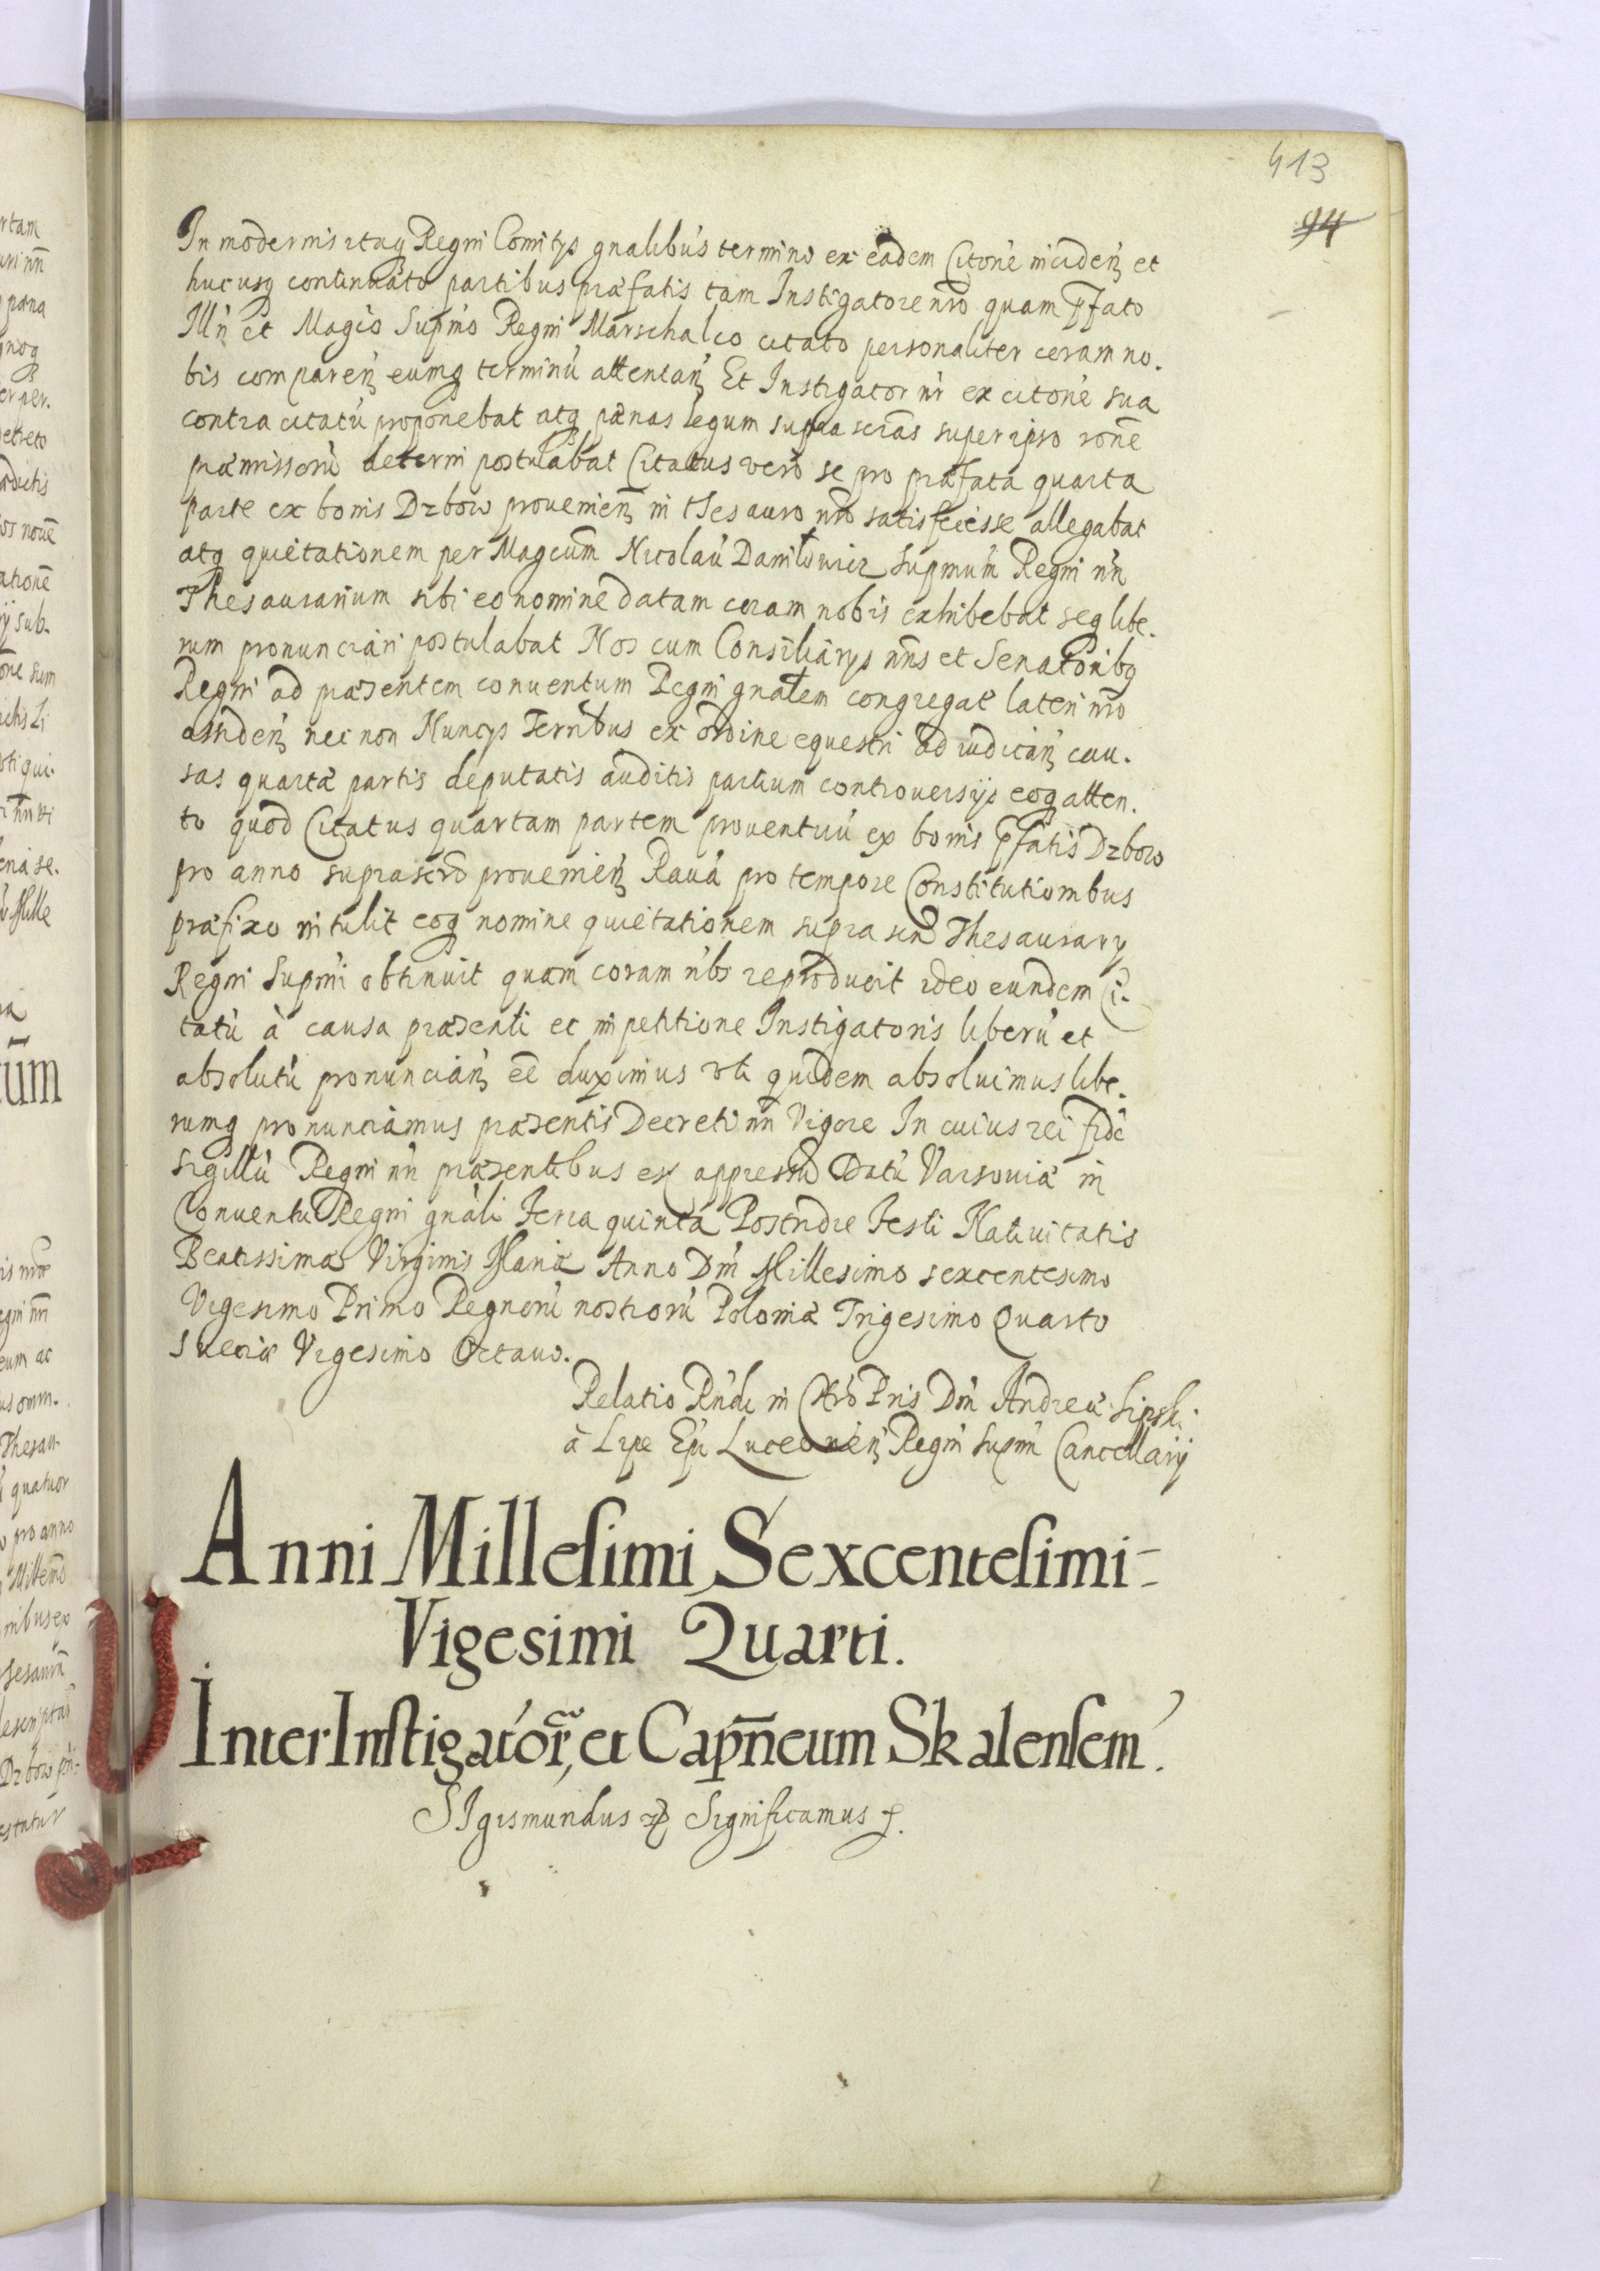 413
94
In modernis itaq Regni Comitys gnalibus termino ex eadem Citone inciden et
hucusq continuato partibus præfatis tam Instigatore nro quam pffato
Illri et Magco Supmo Regni Marschalco citato personaliter coram no.
bis comparen eumq terminu attentan Et Instigator nr ex citone sua
contra citatu proponebat atq pænas legum supra scras super ipso rone
præmissoru decerni postulabat Citatus vero se pro præfata quarta
parte ex bonis Drbow provenien in thesauro nro satisfecisse allegabat
atq quietationem per Magcum Nicolau Daniłowicz Supmum Regni nrn
Thesaurarium sibi eo nomine datam coram nobis exhibebat seq libe.
rum pronunciari postulabat Nos cum Consiliarys nris et Senatoribq
Regni ad præsentem conventum Regni gnalem congregat lateri nro
assiden nec non Nuncys Terribus ex ordine equestri ad iudican cau.
sas quartæ partis deputatis auditis partium controversys eoq atten.
to quod Citatus quartam partem proventuu ex bonis pffatis Drbow
pro anno suprascro provenien Ravæ pro tempore Constitutionibus
præfixo intulit eoq nomine quietationem supra scri Thesaurary
Regni Supmi obtinuit quam coram nobis reproduxit ideo eundem Ci-
tatu à causa præsenti et impetitione Instigatoris liberu et
absolutu pronuncian ee duximus uti quidem absolvimus libe.
rumq pronunciamus præsentis Decreti nri Vigore In cuius rei fide
sigillu Regni nri præsentibus est appressu Datu Varsoviæ in
Conventu Regni gnali Feria quinta Postridie Festi Nativitatis
Beatissimæ Virginis Mariæ Anno Dni Millesimo sexcentesimo
Vigesimo Primo Regnoru nostroru Poloniæ Trigesimo Quarto
Sueciæ Vigesimo Octavo.
Relatio Rndi in Chro Pris Dni Andreæ Lipski
à Lipe Epi Luceorien Regni Supmi Cancellarij
Anni Millesimi Sexcentesimi
Vigesimi Quarti.
Inter Instigator, et Capneum Skalensem.
SIgismundus Significamus